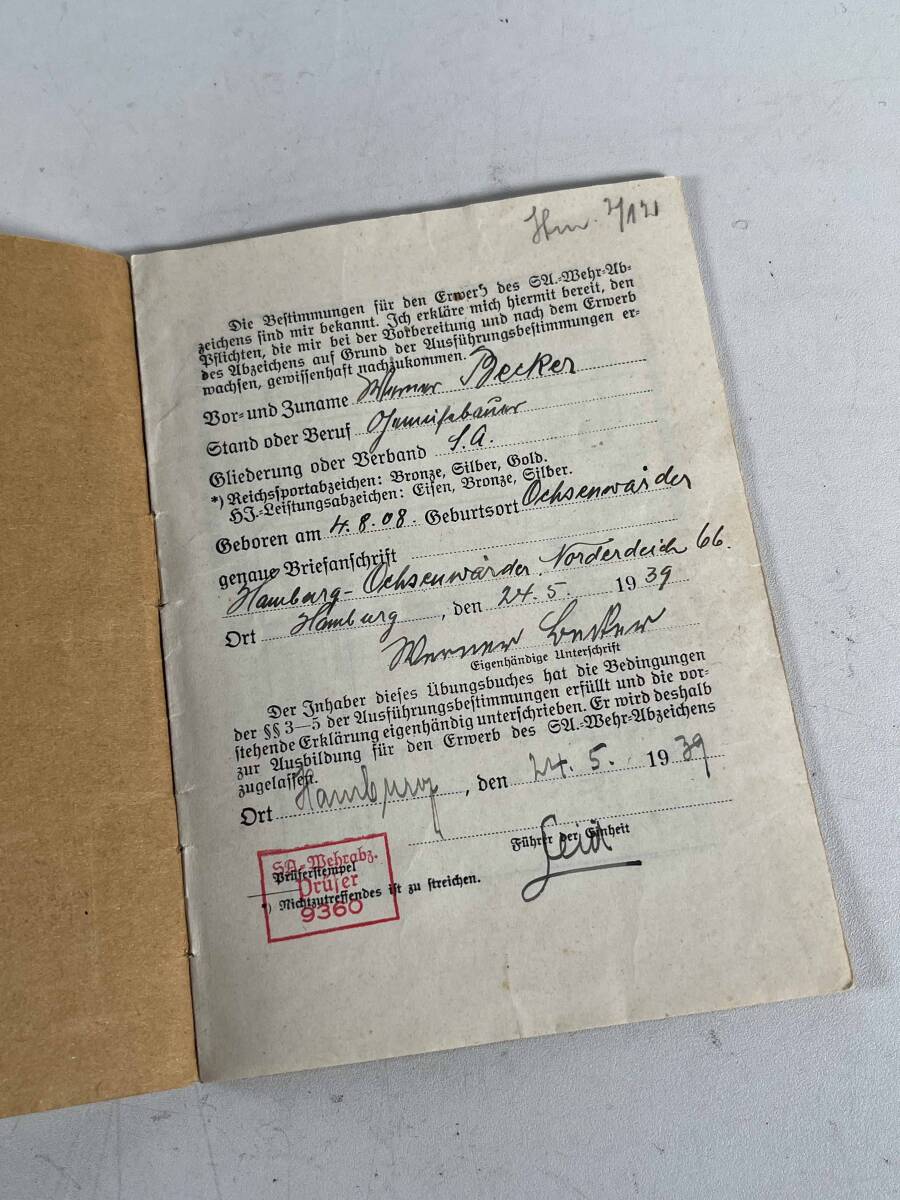 Die Bestimmungen für den Erwerb des SA.-Wehr-Ab-
zeichens sind mir bekannt. Ich erkläre mich hiermit bereit, den
Pflichten, die mir bei der Vorbereitung und nach dem Erwerb
des Abzeichens auf Grund der Ausführungsbestimmungen er-
wachsen, gewissenhaft nachzukommen.
Vor- und Zuname Werner Becker
Stand oder Beruf Gemüsebauer
Gliederung oder Verband S.A.
*) Reichssportabzeichen: Bronze, Silber, Gold.
HJ.-Leistungsabzeichen: Eisen, Bronze, Silber.
Geboren am 4.8.08. Geburtsort Ochsenwärder
genaue Briefanschrift
Hamburg-Ochsenwärder, Norderdeich 66.
Ort Hamburg, den 24.5. 1939
Werner Becker
Eigenhändige Unterschrift
Der Inhaber dieses Übungsbuches hat die Bedingungen
der §§ 3—5 der Ausführungsbestimmungen erfüllt und die vor-
stehende Erklärung eigenhändig unterschrieben. Er wird deshalb
zur Ausbildung für den Erwerb des SA.-Wehr-Abzeichens
zugelassen.
Ort Hamburg, den 24.5. 1939
Führer der Einheit
SA.-Wehrabz.
Prüferstempel
Prüfer
*) Nichtzutreffendes ist zu streichen.
9360